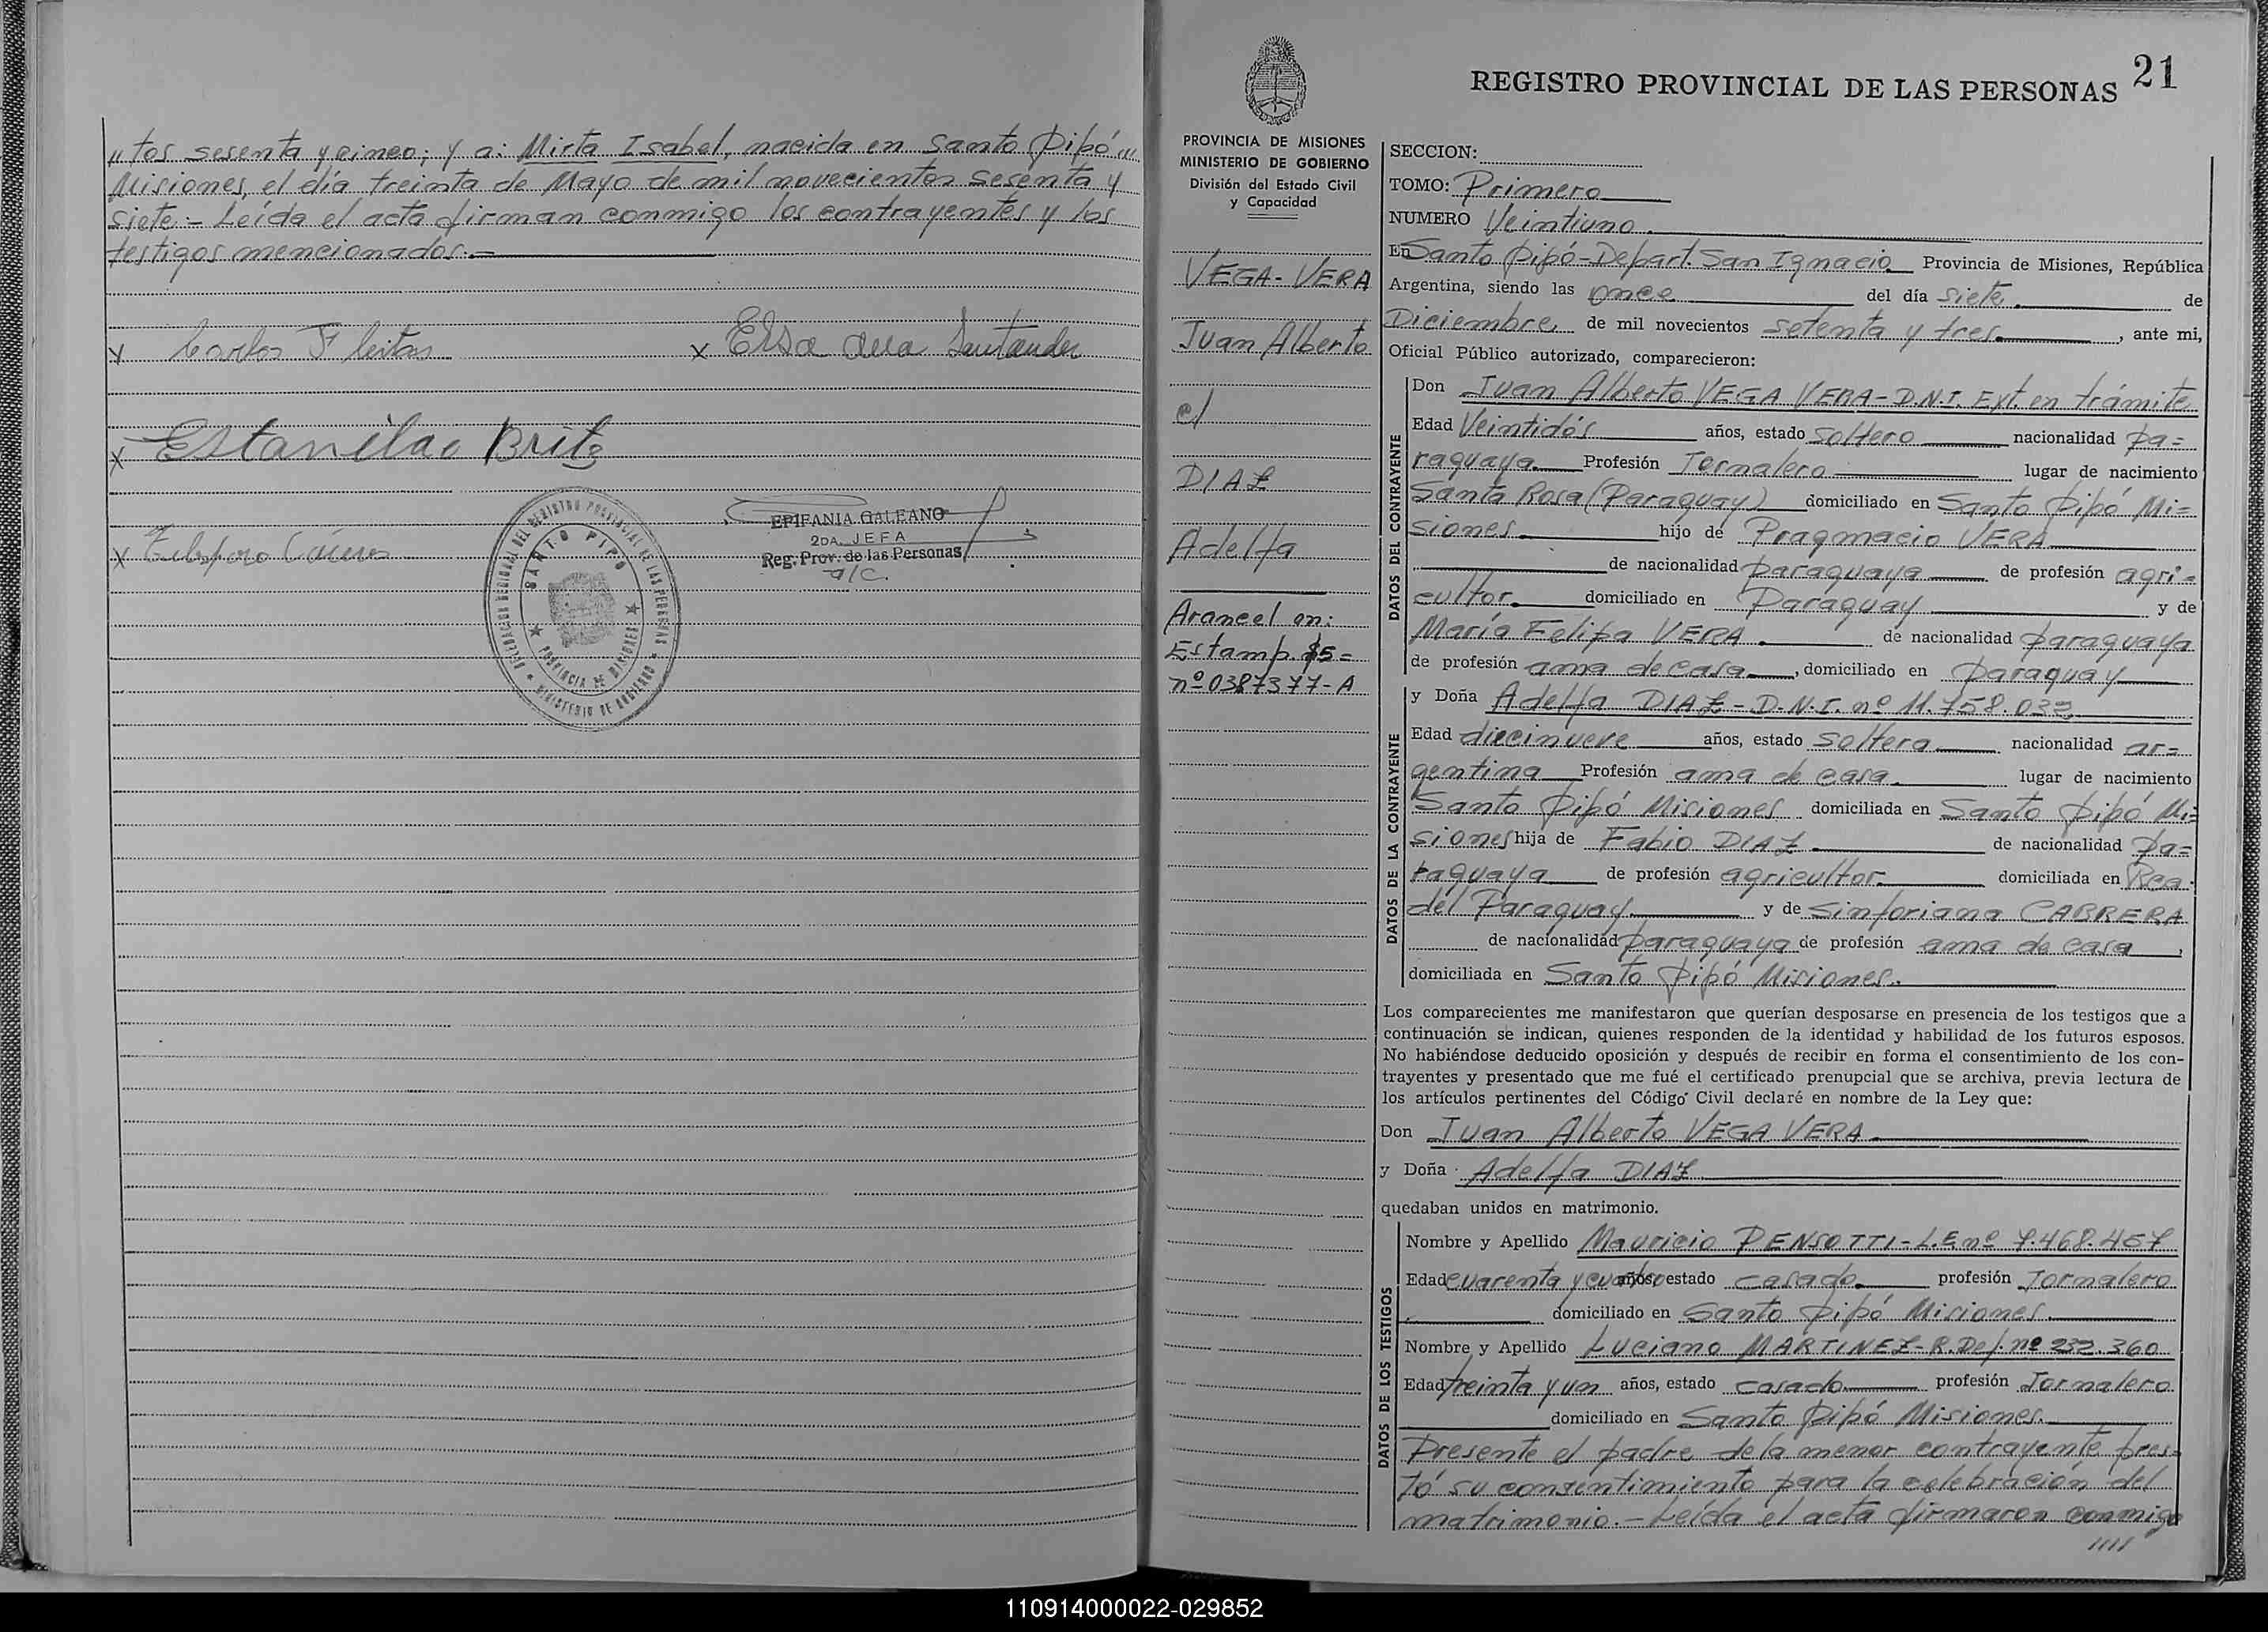 "tos sesenta y cinco; y a: Mirta Isabel, nacida en Santo Pipó "
Misiones, el día treinta de Mayo de mil novecientos sesenta y
siete.- Leída el acta firman conmigo los contrayentes y los
testigos mencionados.-
x Carlos Fleitas x Elsa Ana Santander
x Estanilao Britz
EPIFANIA GALEANO
2DA. JEFA
Reg. Prov. de las Personas
a/c.
x Telesforo Cáceres
DELEGACION REGIONAL DEL REGISTRO PROVINCIAL DE LAS PERSONAS
SANTO PIPO
PROVINCIA DE MISIONES
MINISTERIO DE GOBIERNO
21
REGISTRO PROVINCIAL DE LAS PERSONAS
PROVINCIA DE MISIONES
MINISTERIO DE GOBIERNO
División del Estado Civil
y Capacidad
VEGA-VERA
Juan Alberto
c/
DIAZ
Adelfa
Arancel en:
Estamp. $5=
nº 0387377-A
SECCION:
TOMO: Primero
NUMERO Veintiuno.
En Santo Pipó-Depart. San Ignacio Provincia de Misiones, República
Argentina, siendo las once del día siete. de
Diciembre de mil novecientos setenta y tres , ante mi,
Oficial Público autorizado, comparecieron:
DATOS DEL CONTRAYENTE
Don Juan Alberto VEGA VERA-D.N.I. Ext. en trámite
Edad Veintidós años, estado soltero nacionalidad pa=
raguaya Profesión Jornalero lugar de nacimiento
Santa Rosa (Paraguay) domiciliado en Santo Pipó Mi=
siones. hijo de Pragmacio VERA
de nacionalidad paraguaya de profesión agri=
cultor. domiciliado en Paraguay y de
María Felipa VERA. de nacionalidad paraguaya
de profesión ama de casa , domiciliado en paraguay
DATOS DE LA CONTRAYENTE
y Doña Adelfa DIAZ-D.N.I. nº 11.758.033
Edad diecinueve años, estado soltera nacionalidad ar=
gentina Profesión ama de casa. lugar de nacimiento
Santo Pipó Misiones domiciliada en Santo Pipó Mi=
siones hija de Fabio DIAZ. de nacionalidad pa=
raguaya de profesión agricultor. domiciliada en Rca.
del Paraguay y de Sinforiana CABRERA
de nacionalidad paraguaya de profesión ama de casa ,
domiciliada en Santo Pipó Misiones.
Los comparecientes me manifestaron que querían desposarse en presencia de los testigos que a
continuación se indican, quienes responden de la identidad y habilidad de los futuros esposos.
No habiéndose deducido oposición y después de recibir en forma el consentimiento de los con-
trayentes y presentado que me fué el certificado prenupcial que se archiva, previa lectura de
los artículos pertinentes del Código Civil declaré en nombre de la Ley que:
Don Juan Alberto VEGA VERA.
y Doña Adelfa DIAZ
quedaban unidos en matrimonio.
DATOS DE LOS TESTIGOS
Nombre y Apellido Mauricio PENSOTTI-L.E. nº 7.468.457
Edad cuarenta y cuatro años, estado casado. profesión Jornalero
domiciliado en Santo Pipó Misiones.
Nombre y Apellido Luciano MARTINEZ-R.Def. nº 232.360
Edad treinta y un años, estado casado profesión Jornalero
domiciliado en Santo Pipó Misiones.
Presente el padre de la menor contrayente pres=
tó su consentimiento para la celebración del
matrimonio.-Leída el acta firmaron conmigo
////
110914000022-029852